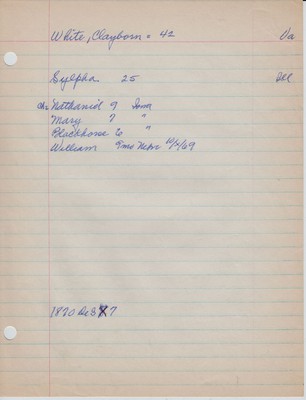 White, Clayborn - 42 Va
Sylpha 25 Ill
Ch: Nathaniel 9 Iowa
Mary 7 "
Blackhorse 6 "
William 9mo Nebr 10/x/69
1870 DeS 7